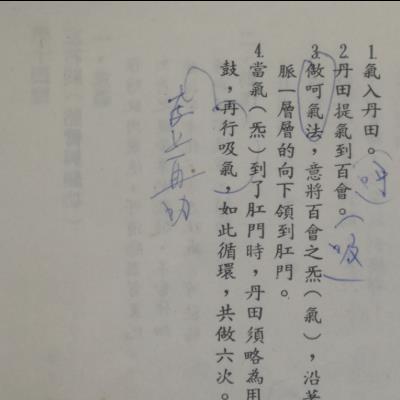 1.氣入丹田。
2.丹田提氣到百會。(吸)
3.做呵氣法，意將百會之炁(氣)，沿著
脈一層層的向下領到肛門。
4.當氣(炁)到了肛門時，丹田須略為用
鼓，再行吸氣，如此循環，共做六次。